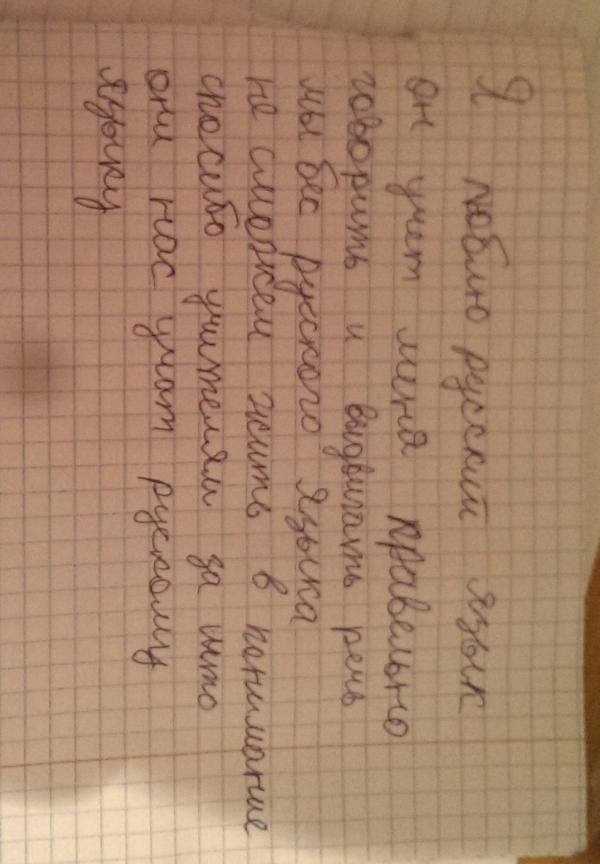 Я люблю русский язык
он учит меня правельно
говорить и выдвигать речь
мы бес руского языка
не сможем жить в понимание
спосибо учителям за што
они нас учат рускому
языку